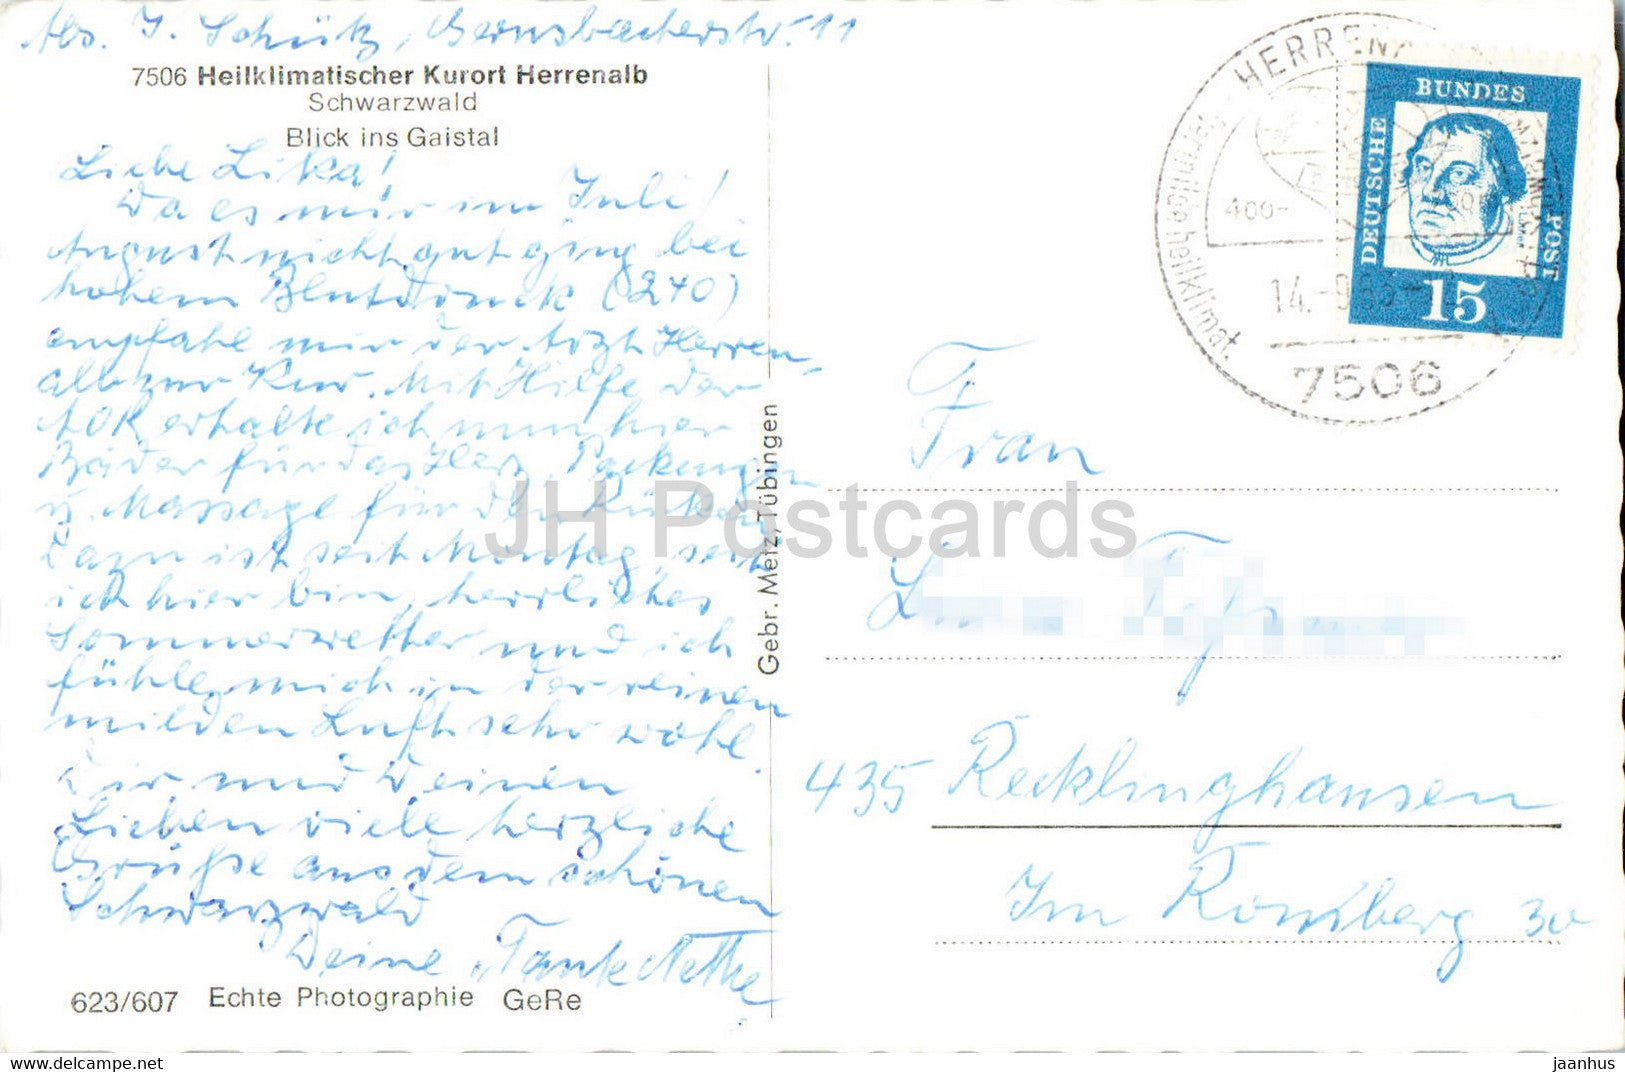 Abs. J. Schütz, Gernsbacherstr. 11
7506 Heilklimatischer Kurort Herrenalb
Schwarzwald
Blick ins Gaistal
Liebe Lika!
Da es mir im Juli/
August nicht gut ging bei
hohem Blutdruck (240)
empfahl mir der Arzt Herren-
alb zur Kur. Mit Hilfe der
AOK erhalte ich nun hier
Bäder für das Herz, Packungen
u. Massage für den Rücken
Dazu ist seit Montag, seit
ich hier bin, herrliches
Sommerwetter und ich
fühle mich in der reinen
milden Luft sehr wohl.
Dir und Deinen
Lieben viele herzliche
Grüße aus dem schönen
Schwarzwald
Deine Tante Nettke
623/607 Echte Photographie GeRe
Gebr. Metz, Tübingen
HERREN
heilklimat.
400-
14.-9.
7506
DEUTSCHE BUNDES POST
Luther
15
Frau
435 Recklinghausen
Im Romberg 30
JH Postcards
www.delcampe.net
jaanhus